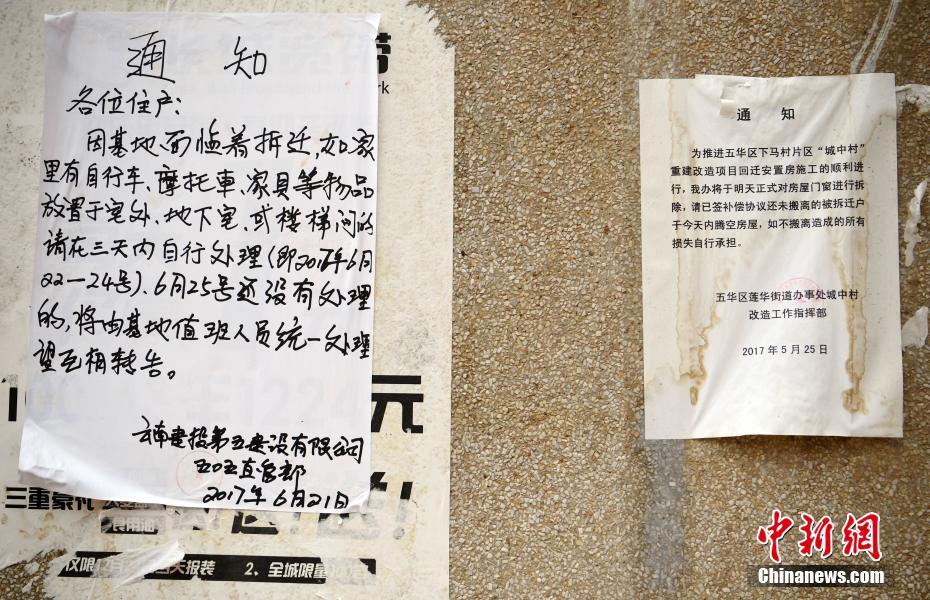 通知
各位住户：
因基地面临着拆迁，如家
里有自行车、摩托車、家具等物品
放置于室外、地下室、或楼梯间的
请在三天内自行处理(即2017年6月
22—24号)、6月25号还没有处理
的，将由基地值班人员统一处理
望互相转告。
云南建投第五建设有限公司
五0五直管部
2017年6月21日
元
三重豪礼
食用油
2、全城限量
通 知
为推进五华区下马村片区“城中村”
重建改造项目回迁安置房施工的顺利进
行，我办将于明天正式对房屋门窗进行拆
除，请已签补偿协议还未搬离的被拆迁户
于今天内腾空房屋，如不搬离造成的所有
损失自行承担。
五华区莲华街道办事处城中村
改造工作指挥部
2017年5月25日
中新网
Chinanews.com